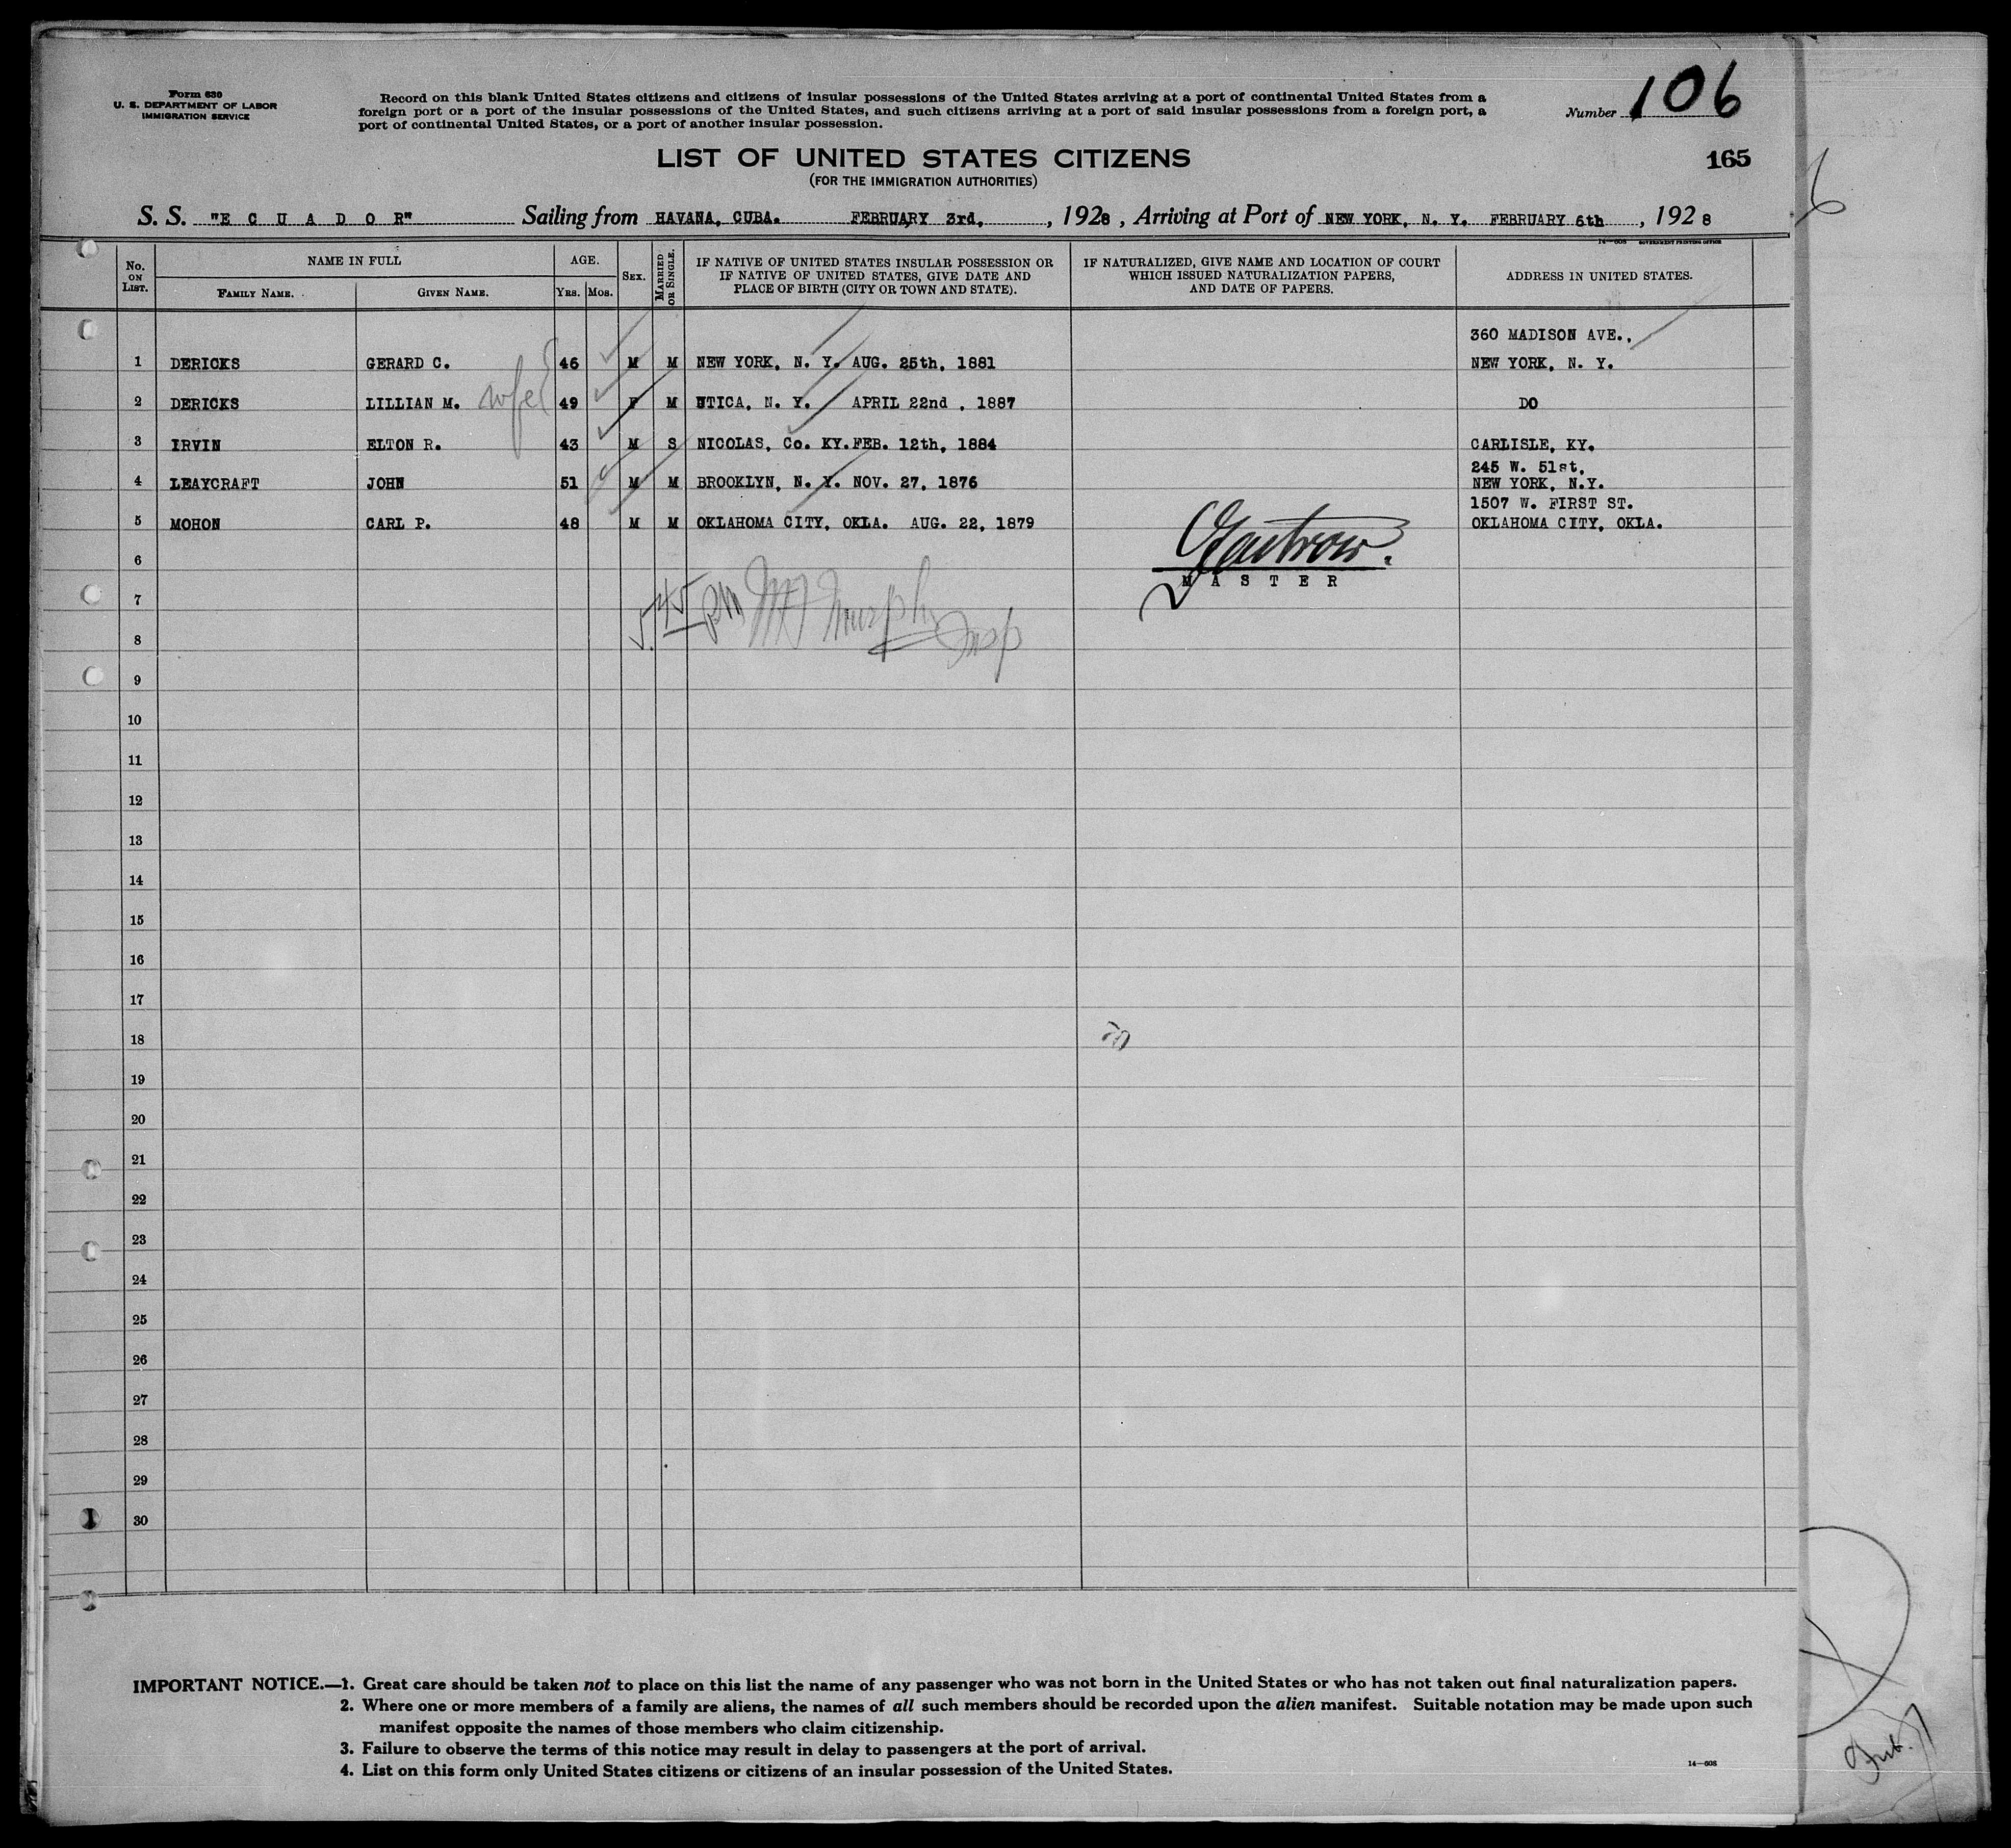 Form 630
U. S. DEPARTMENT OF LABOR
IMMIGRATION SERVICE
Record on this blank United States citizens and citizens of insular possessions of the United States arriving at a port of continental United States from a
foreign port or a port of the insular possessions of the United States, and such citizens arriving at a port of said insular possessions from a foreign port, a
port of continental United States, or a port of another insular possession.
Number 106
LIST OF UNITED STATES CITIZENS
165
(FOR THE IMMIGRATION AUTHORITIES)
S. S. "E C U A D O R" Sailing from HAVANA, CUBA. FEBRUARY 3rd, , 1928 , Arriving at Port of NEW YORK, N. Y. FEBRUARY 6th , 1928
14—608 GOVERNMENT PRINTING OFFICE
No. ON LIST. NAME IN FULL AGE. SEX. MARRIED OR SINGLE. IF NATIVE OF UNITED STATES INSULAR POSSESSION OR IF NATIVE OF UNITED STATES, GIVE DATE AND PLACE OF BIRTH (CITY OR TOWN AND STATE). IF NATURALIZED, GIVE NAME AND LOCATION OF COURT WHICH ISSUED NATURALIZATION PAPERS, AND DATE OF PAPERS. ADDRESS IN UNITED STATES.
FAMILY NAME. GIVEN NAME. YRS. MOS.
360 MADISON AVE.,
1 DERICKS GERARD C. 46 M M NEW YORK, N. Y. AUG. 25th, 1881 NEW YORK, N. Y.
2 DERICKS LILLIAN M. wife 49 F M UTICA, N. Y. APRIL 22nd , 1887 DO
3 IRVIN ELTON R. 43 M S NICOLAS, Co. KY. FEB. 12th, 1884 CARLISLE, KY.
245 W. 51st,
4 LEAYCRAFT JOHN 51 M M BROOKLYN, N. Y. NOV. 27, 1876 NEW YORK, N.Y.
1507 W. FIRST ST.
5 MOHON CARL P. 48 M M OKLAHOMA CITY, OKLA. AUG. 22, 1879 OKLAHOMA CITY, OKLA.
6
MASTER
7
5.45 PM Murphy Insp
8
9
10
11
12
13
14
15
16
17
18
19
20
21
22
23
24
25
26
27
28
29
30
IMPORTANT NOTICE.—1. Great care should be taken not to place on this list the name of any passenger who was not born in the United States or who has not taken out final naturalization papers.
2. Where one or more members of a family are aliens, the names of all such members should be recorded upon the alien manifest. Suitable notation may be made upon such
manifest opposite the names of those members who claim citizenship.
3. Failure to observe the terms of this notice may result in delay to passengers at the port of arrival.
4. List on this form only United States citizens or citizens of an insular possession of the United States.
14—608